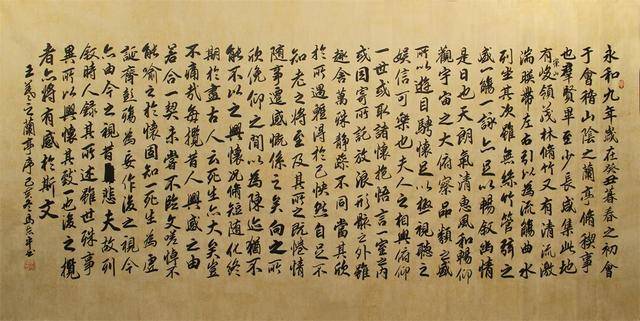 永和九年歲在癸丑暮春之初會
于會稽山陰之蘭亭脩禊事
也群賢畢至少長咸集此地
崇山
有峻領茂林脩竹又有清流激
湍暎帶左右引以為流觴曲水
列坐其次雖無絲竹管弦之
盛一觴一詠亦足以暢敘幽情
是日也天朗氣清惠風和暢仰
觀宇宙之大俯察品類之盛
所以遊目騁懷足以極視聽之
娛信可樂也夫人之相與俯仰
一世或取諸懷抱悟言一室之內
或因寄所託放浪形骸之外雖
趣舍萬殊靜躁不同當其欣
於所遇蹔得於己怏然自足不
知老之將至及其所之既惓情
隨事遷感慨係之矣向之所
欣俛仰之閒以為陳迹猶不
能不以之興懷況脩短隨化終
期於盡古人云死生亦大矣豈
不痛哉每攬昔人興感之由
若合一契未嘗不臨文嗟悼不
能喻之於懷固知一死生為虛
誕齊彭殤為妄作後之視今
亦由今之視昔悲夫故列
敘時人錄其所述雖世殊事
異所以興懷其致一也後之攬
者亦將有感於斯文
王羲之蘭亭序